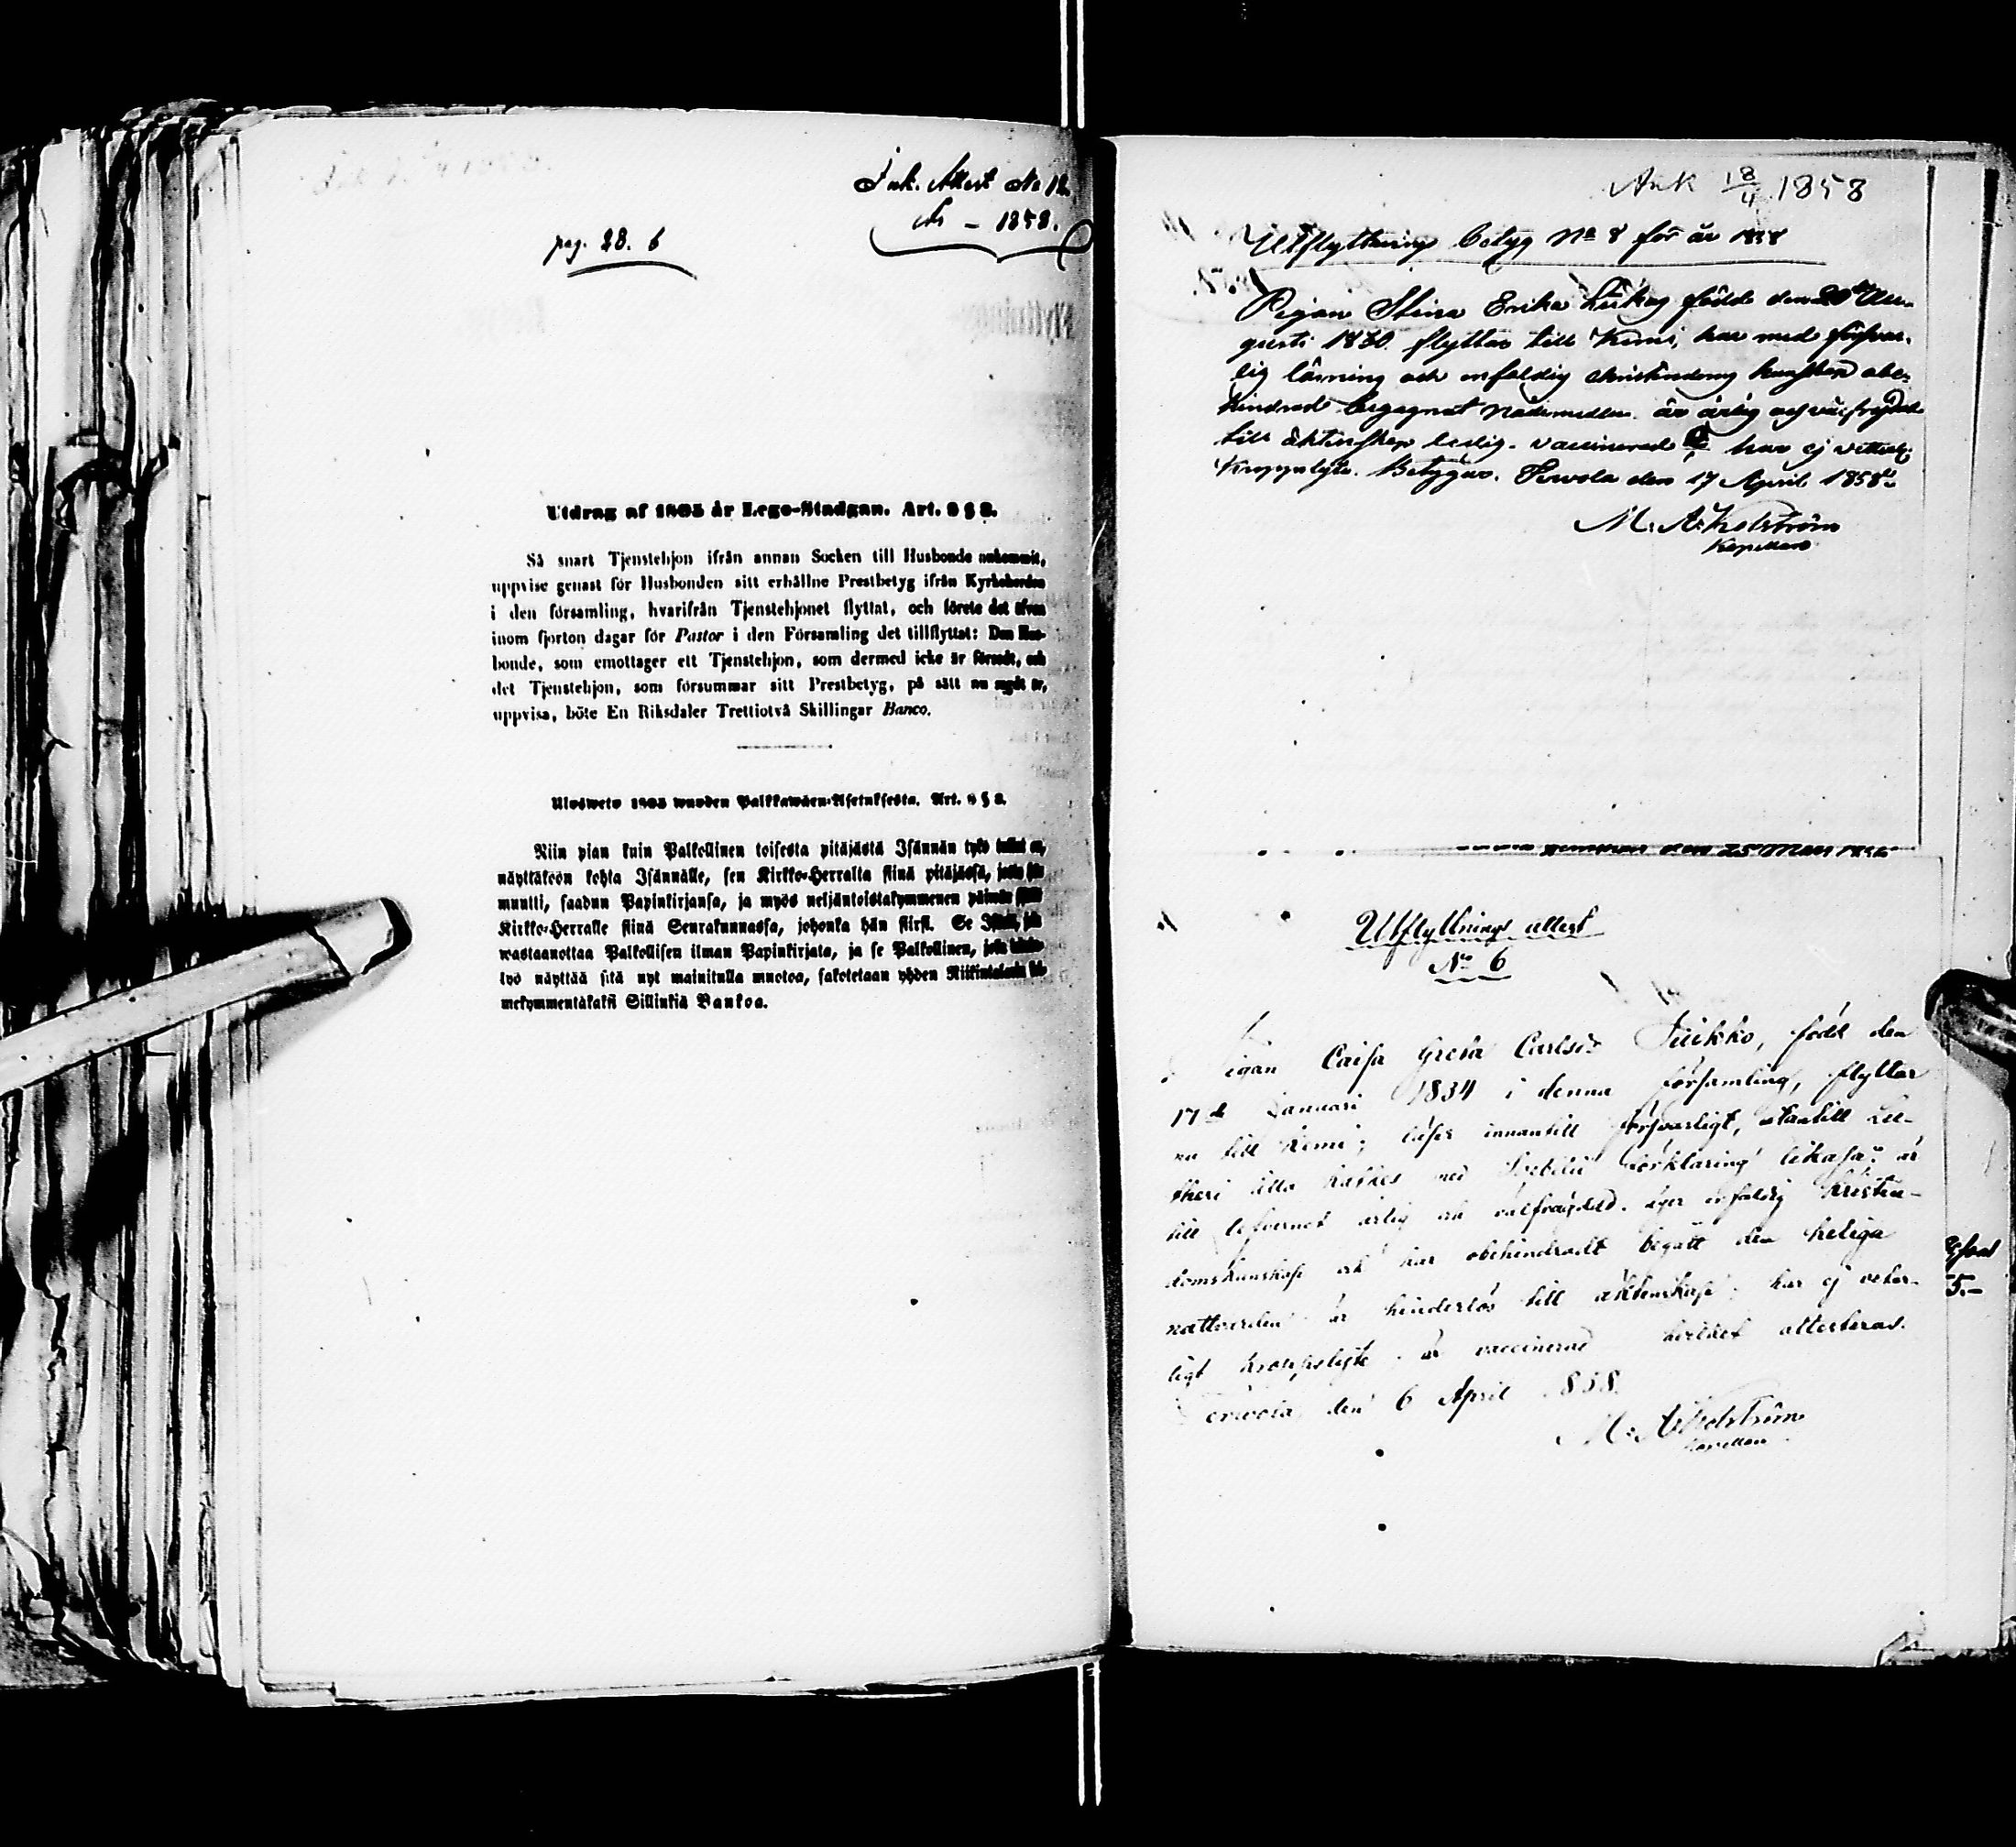 Ink. Attest No 12.
År – 1858.
pag. 28. 6
Utdrag af 1805 år Lego-Stadgan. Art. 9 § 8.
Så snart Tjenstehjon ifrån annan Socken till Husbonde ankommit,
uppvise genast för Husbonden sitt erhållne Prestbetyg ifrån Kyrkoherden
i den församling, hvarifrån Tjenstehjonet flyttat, och förete det äfven
inom fjorton dagar för Pastor i den Församling det tillflyttat: Den Hus-
bonde, som emottager ett Tjenstehjon, som dermed icke är försedt, och
det Tjenstehjon, som försummar sitt Prestbetyg, på sätt nu sagdt är,
uppvisa, böte En Riksdaler Trettiotvå Skillingar Banco.
Ulosweto 1805 wuoden Palkkawäen-Asetuksesta. Art. 9 § 8.
Niin pian kuin Palkollinen toisesta pitäjästä Isännän tykö tullut on,
näyttäköön kohta Isännälle, sen Kirkko-Herralta siinä pitäjässä, josta hän
muutti, saadun Papinkirjansa, ja myös neljäntoistakymmenen päiwän
Kirkko-Herralle siinä Seurakunnassa, johonka hän siirsi. Se
wastaanottaa Palkollisen ilman Papinkirjata, ja se Palkollinen, joka
työ näyttää sitä nyt mainitulla muotoa, sakotetaan yhden Riikintalarin
mekymmentäkaksi Sillinkiä Bankoa.
Ank 18/4 1858
Utflyttnings betyg No 8 för år 1858
Pigan Stina Erika födde den 20de Au-
gusti 1830. flyttar till Kemi, har med försvar-
lig läsning och enfaldig christendoms kunskap obe-
hindrad begagnat nådemedlen. är ärlig och välfrejdad
till äktenskap ledig. vaccinerad har ej vitterl.
Kroppslyte. Betygar. Tervola den 17 April 1858.
M. A. Holström
Kapellan
den 25 Mars
Utflyttnings attest
No 6
Pigan Caisa Greta Carlsd. Juikko, född den
17de Januari 1834 i denna församling, flyttar
nu till Kemi; läser innantill försvarligt, utantill Lu-
theri lilla katkes med förklaring likaså: är
till lefvernet ärlig och välfrägdad. eger enfaldig kristen-
domskunskap och har obehindradt begått den heliga
nattvarden är hinderlös till äktenskap: har ej veter-
ligt kroppslyte. är vaccinerad attesteras.
Tervola den 6 April 1858.
M. A. Holström
Kapellan
5.–